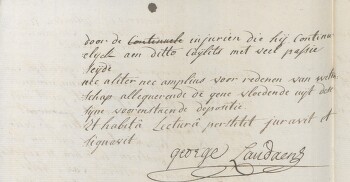 door de Continuele injurien die hij Continu
elyck aen ditto Caylits met veel passie
seyde
nec aliter nec amplius voor redenen van weten
schap allegeerende de gene vloeiende uijt dese
syne voorenstaende depositie
Et habitâ Lecturâ perstitit juravit et
signavit
george Laudaens